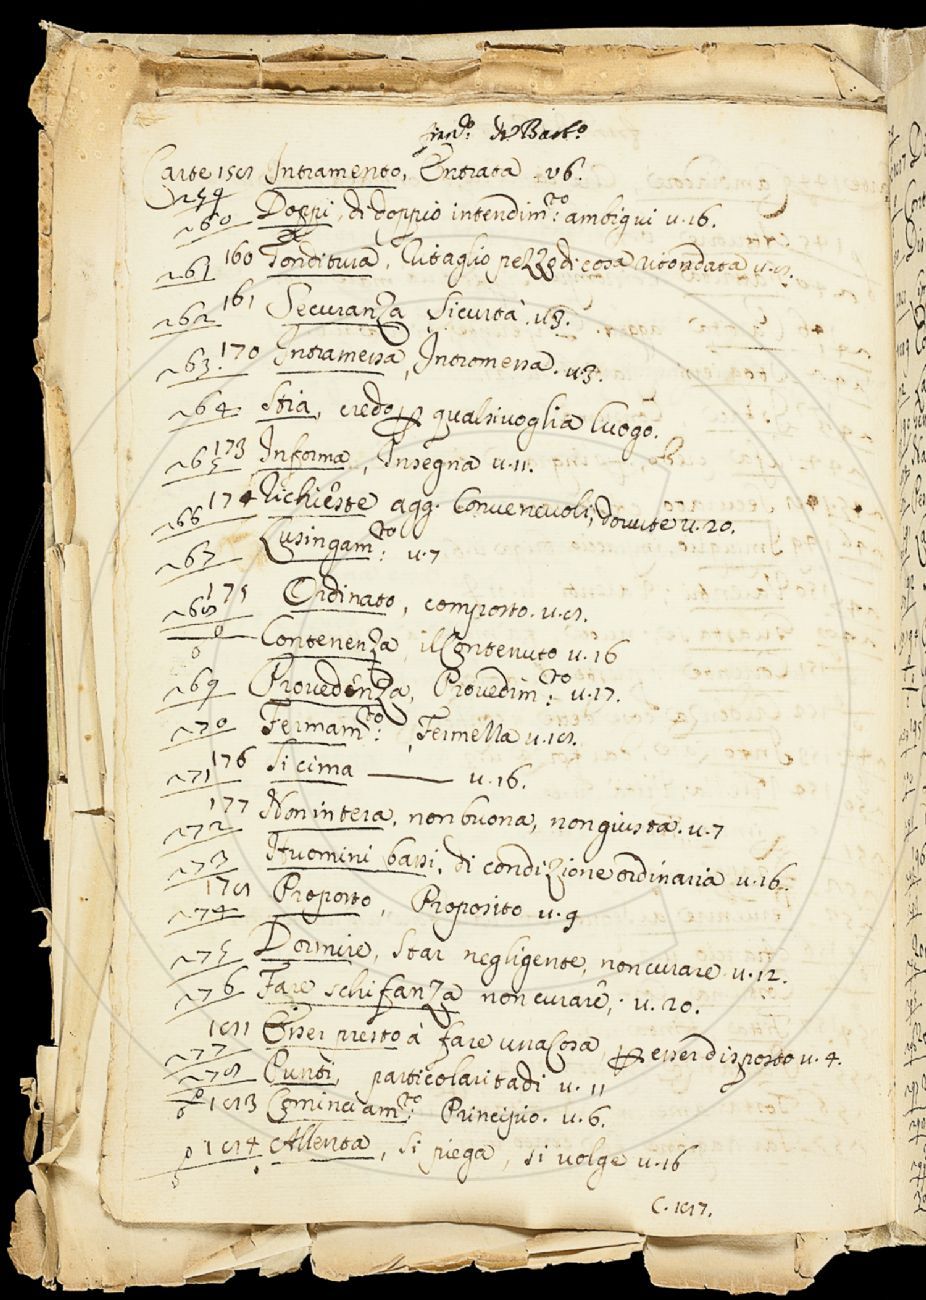 Carte 158 Intramento, Entrata. v6.
259
260 Doppi, di doppio intendim.to ambigui v.16.
261 160 Tonditura, Ritaglio pezzo di cosa ritondata v.8.
262 161 Securanza Sicurtà. v3.
263. 170 Intramessa, Intromessa. v3.
264. Stia, credo per qualsivoglia luogo.
265 173 Informa, Insegna v.11.
266 174 Richieste agg. Convenevoli, dovute v.20.
267 Lusingam.to: v.7
268 175 Ordinato, composto. v.8.
Contenenza, il Contenuto v.16
269 Provedenza, Provedim.to v.17.
270 Fermam.to: , Fermezza v.18.
271 176 Si cima v.16.
272 177 Non intera, non buona, non giusta. v.7
273 Huomini bassi, di condizione ordinaria v.16.
274 178 Proposto, Proposito v.9
275 Dormire, star negligente, non curare v.12.
276 Fare schifanza non curare, v.20.
277 181 Esser presto à fare una Cosa per esser disposto v.4.
278 Punti, particolaritadi v.11
183 Cominciam.to: Principio. v.6.
184 Allenta, si piega, si volge v.16
C.187.